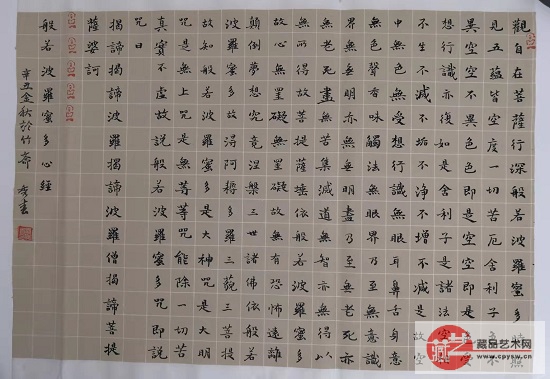 觀自在菩薩行深般若波羅蜜多時照
見五蘊皆空度一切苦厄舍利子色不
異空空不異色色即是空空即是色受
想行識亦復如是舍利子是諸法空相
不生不滅不垢不淨不增不減是故空
中無色無受想行識無眼耳鼻舌身意
無色聲香味觸法無眼界乃至無意識
界無無明亦無無明盡乃至無老死亦
無老死盡無苦集滅道無智亦無得以
無所得故菩提薩埵依般若波羅蜜多
故心無罣礙無罣礙故無有恐怖遠離
顛倒夢想究竟涅槃三世諸佛依般若
波羅蜜多故得阿耨多羅三藐三菩提
故知般若波羅蜜多是大神咒是大明
咒是無上咒是無等等咒能除一切苦
真實不虛故說般若波羅蜜多咒即說
咒曰
揭諦揭諦波羅揭諦波羅僧揭諦菩提
薩婆訶
般若波羅蜜多心經
辛丑金秋於竹齋書
藏艺
藏品艺术网
www.cpysw.cn